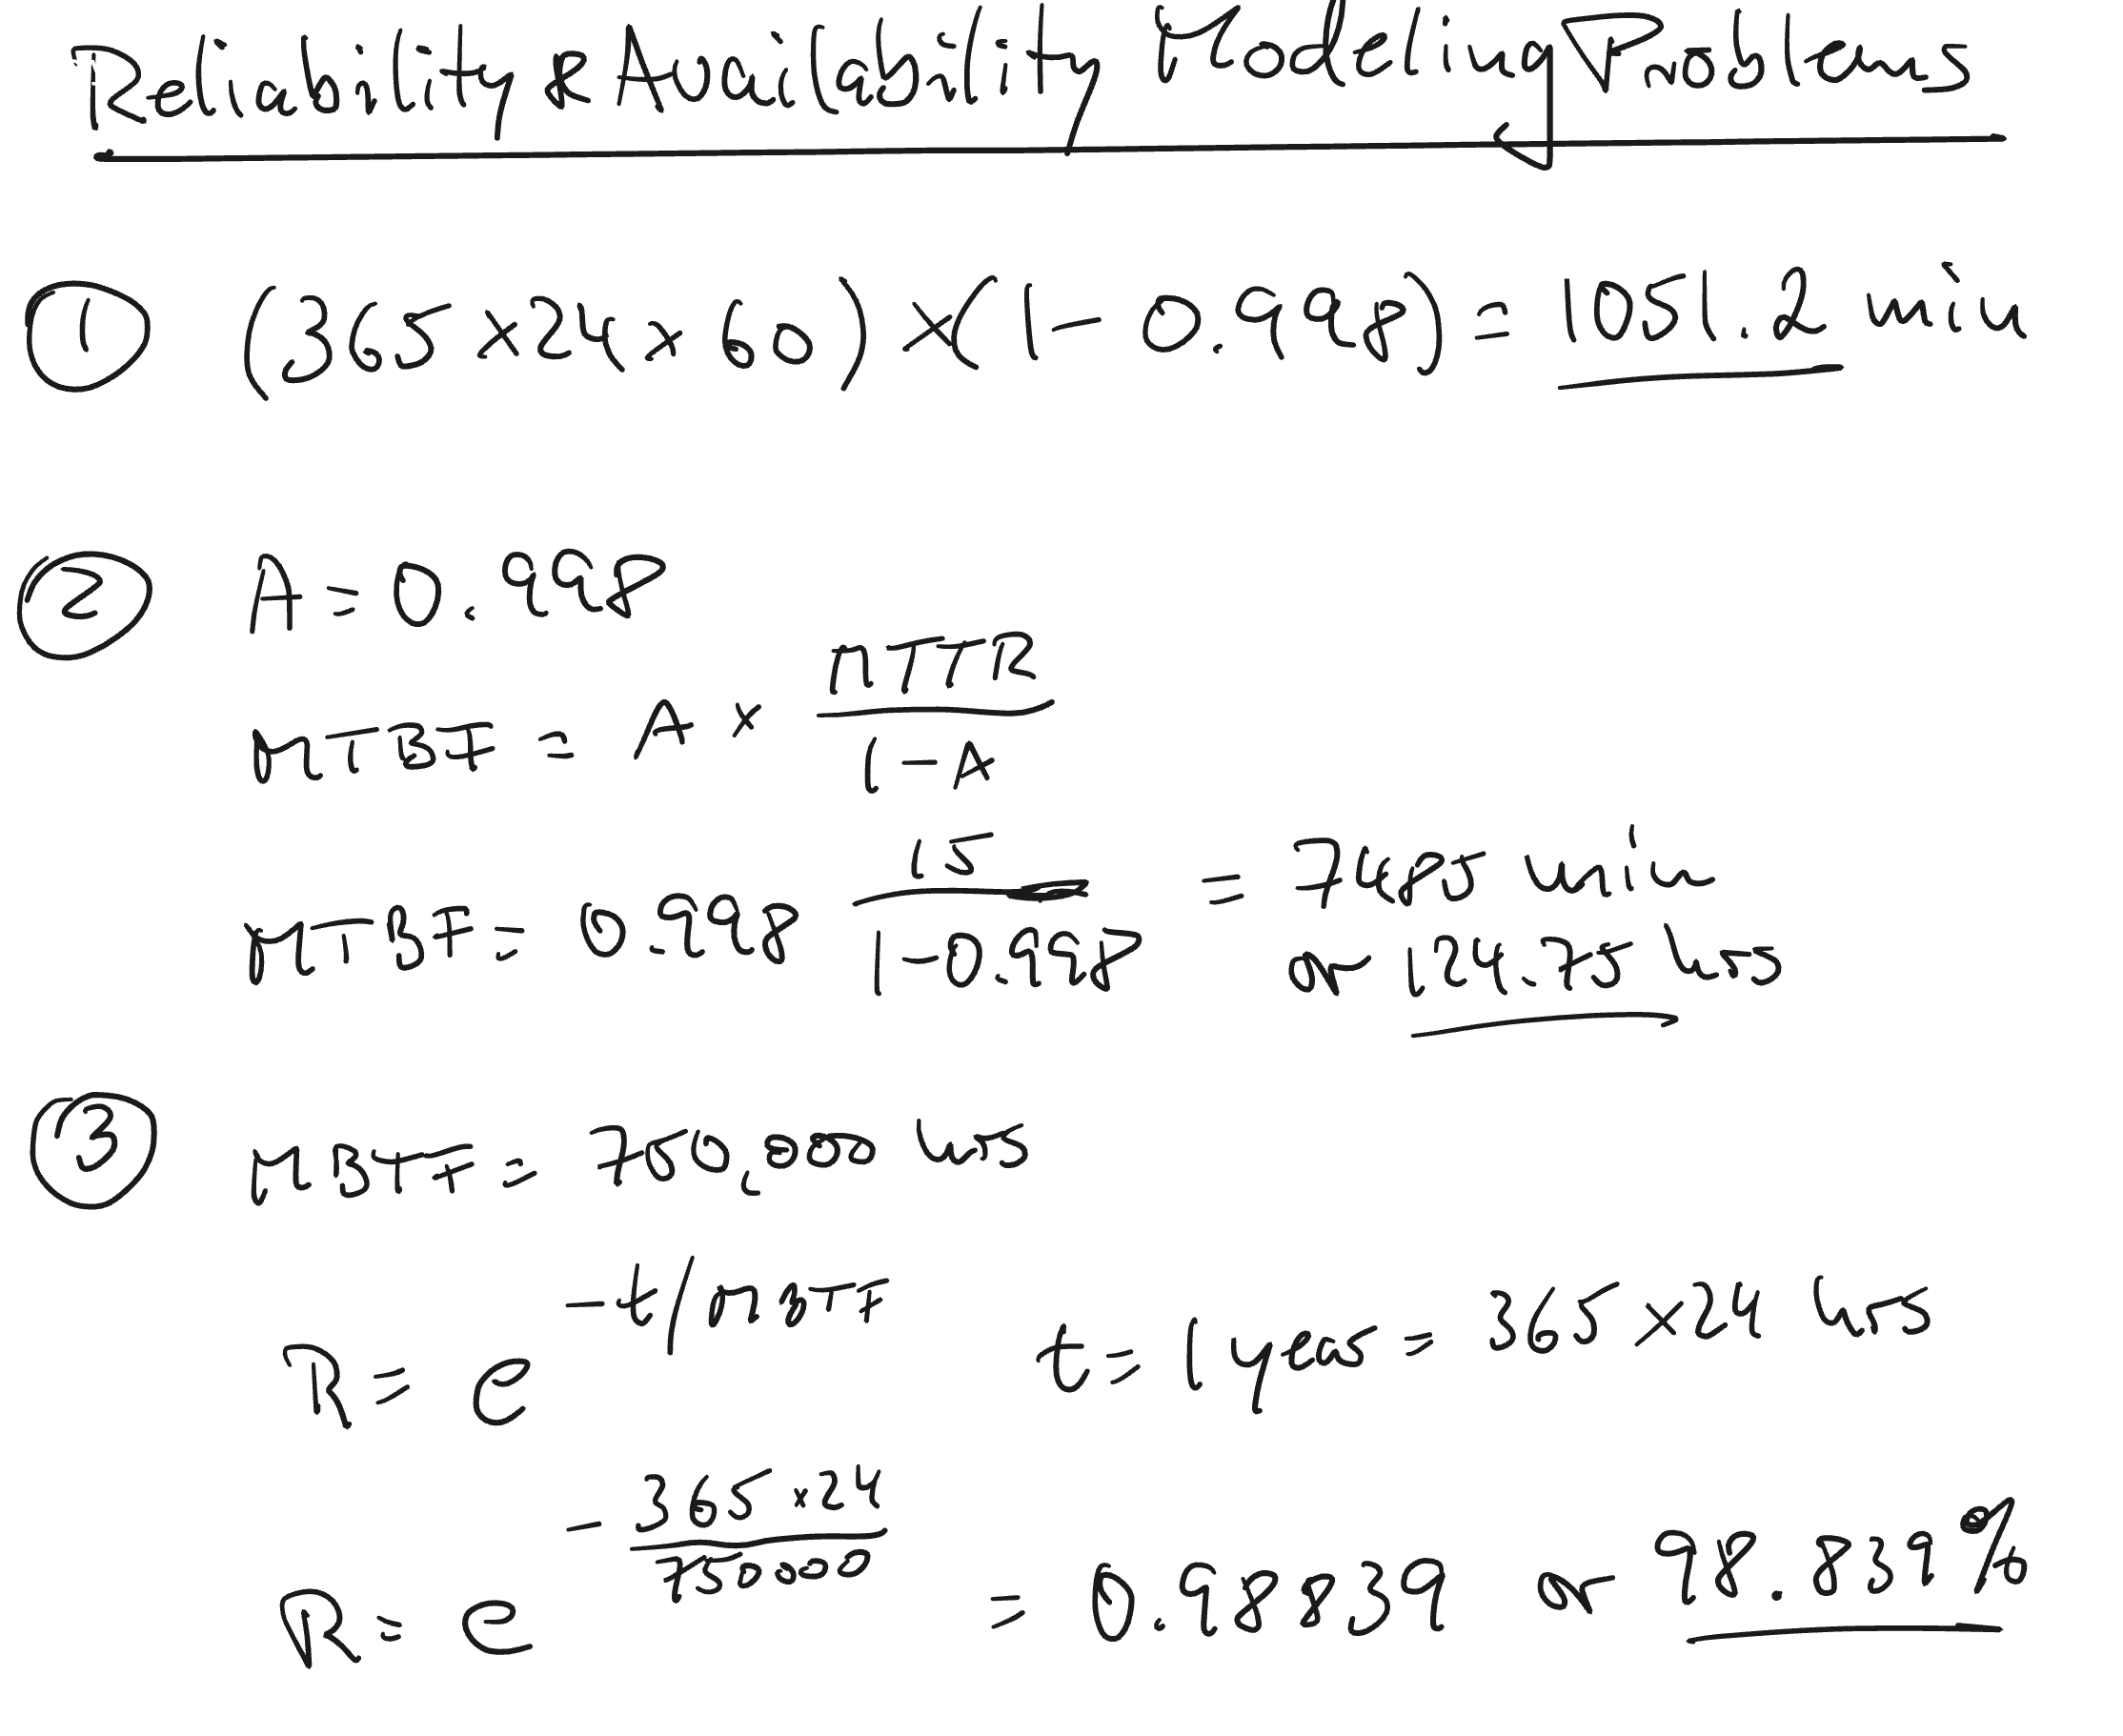 Reliability & Availability Modeling Problems
① (365×24×60) ×(1- 0.998) = 1051.2 min
② A = 0.998
MTBF = A × MTTR / 1-A
MTBF = 0.998 15 / 1-0.998 = 7485 min
or 124.75 hrs
③ MBTF = 750,000 hrs
R = e^-t/MBTF t = 1 year = 365×24 hrs
R = e^-365×24/750000 = 0.98839 or 98.839%